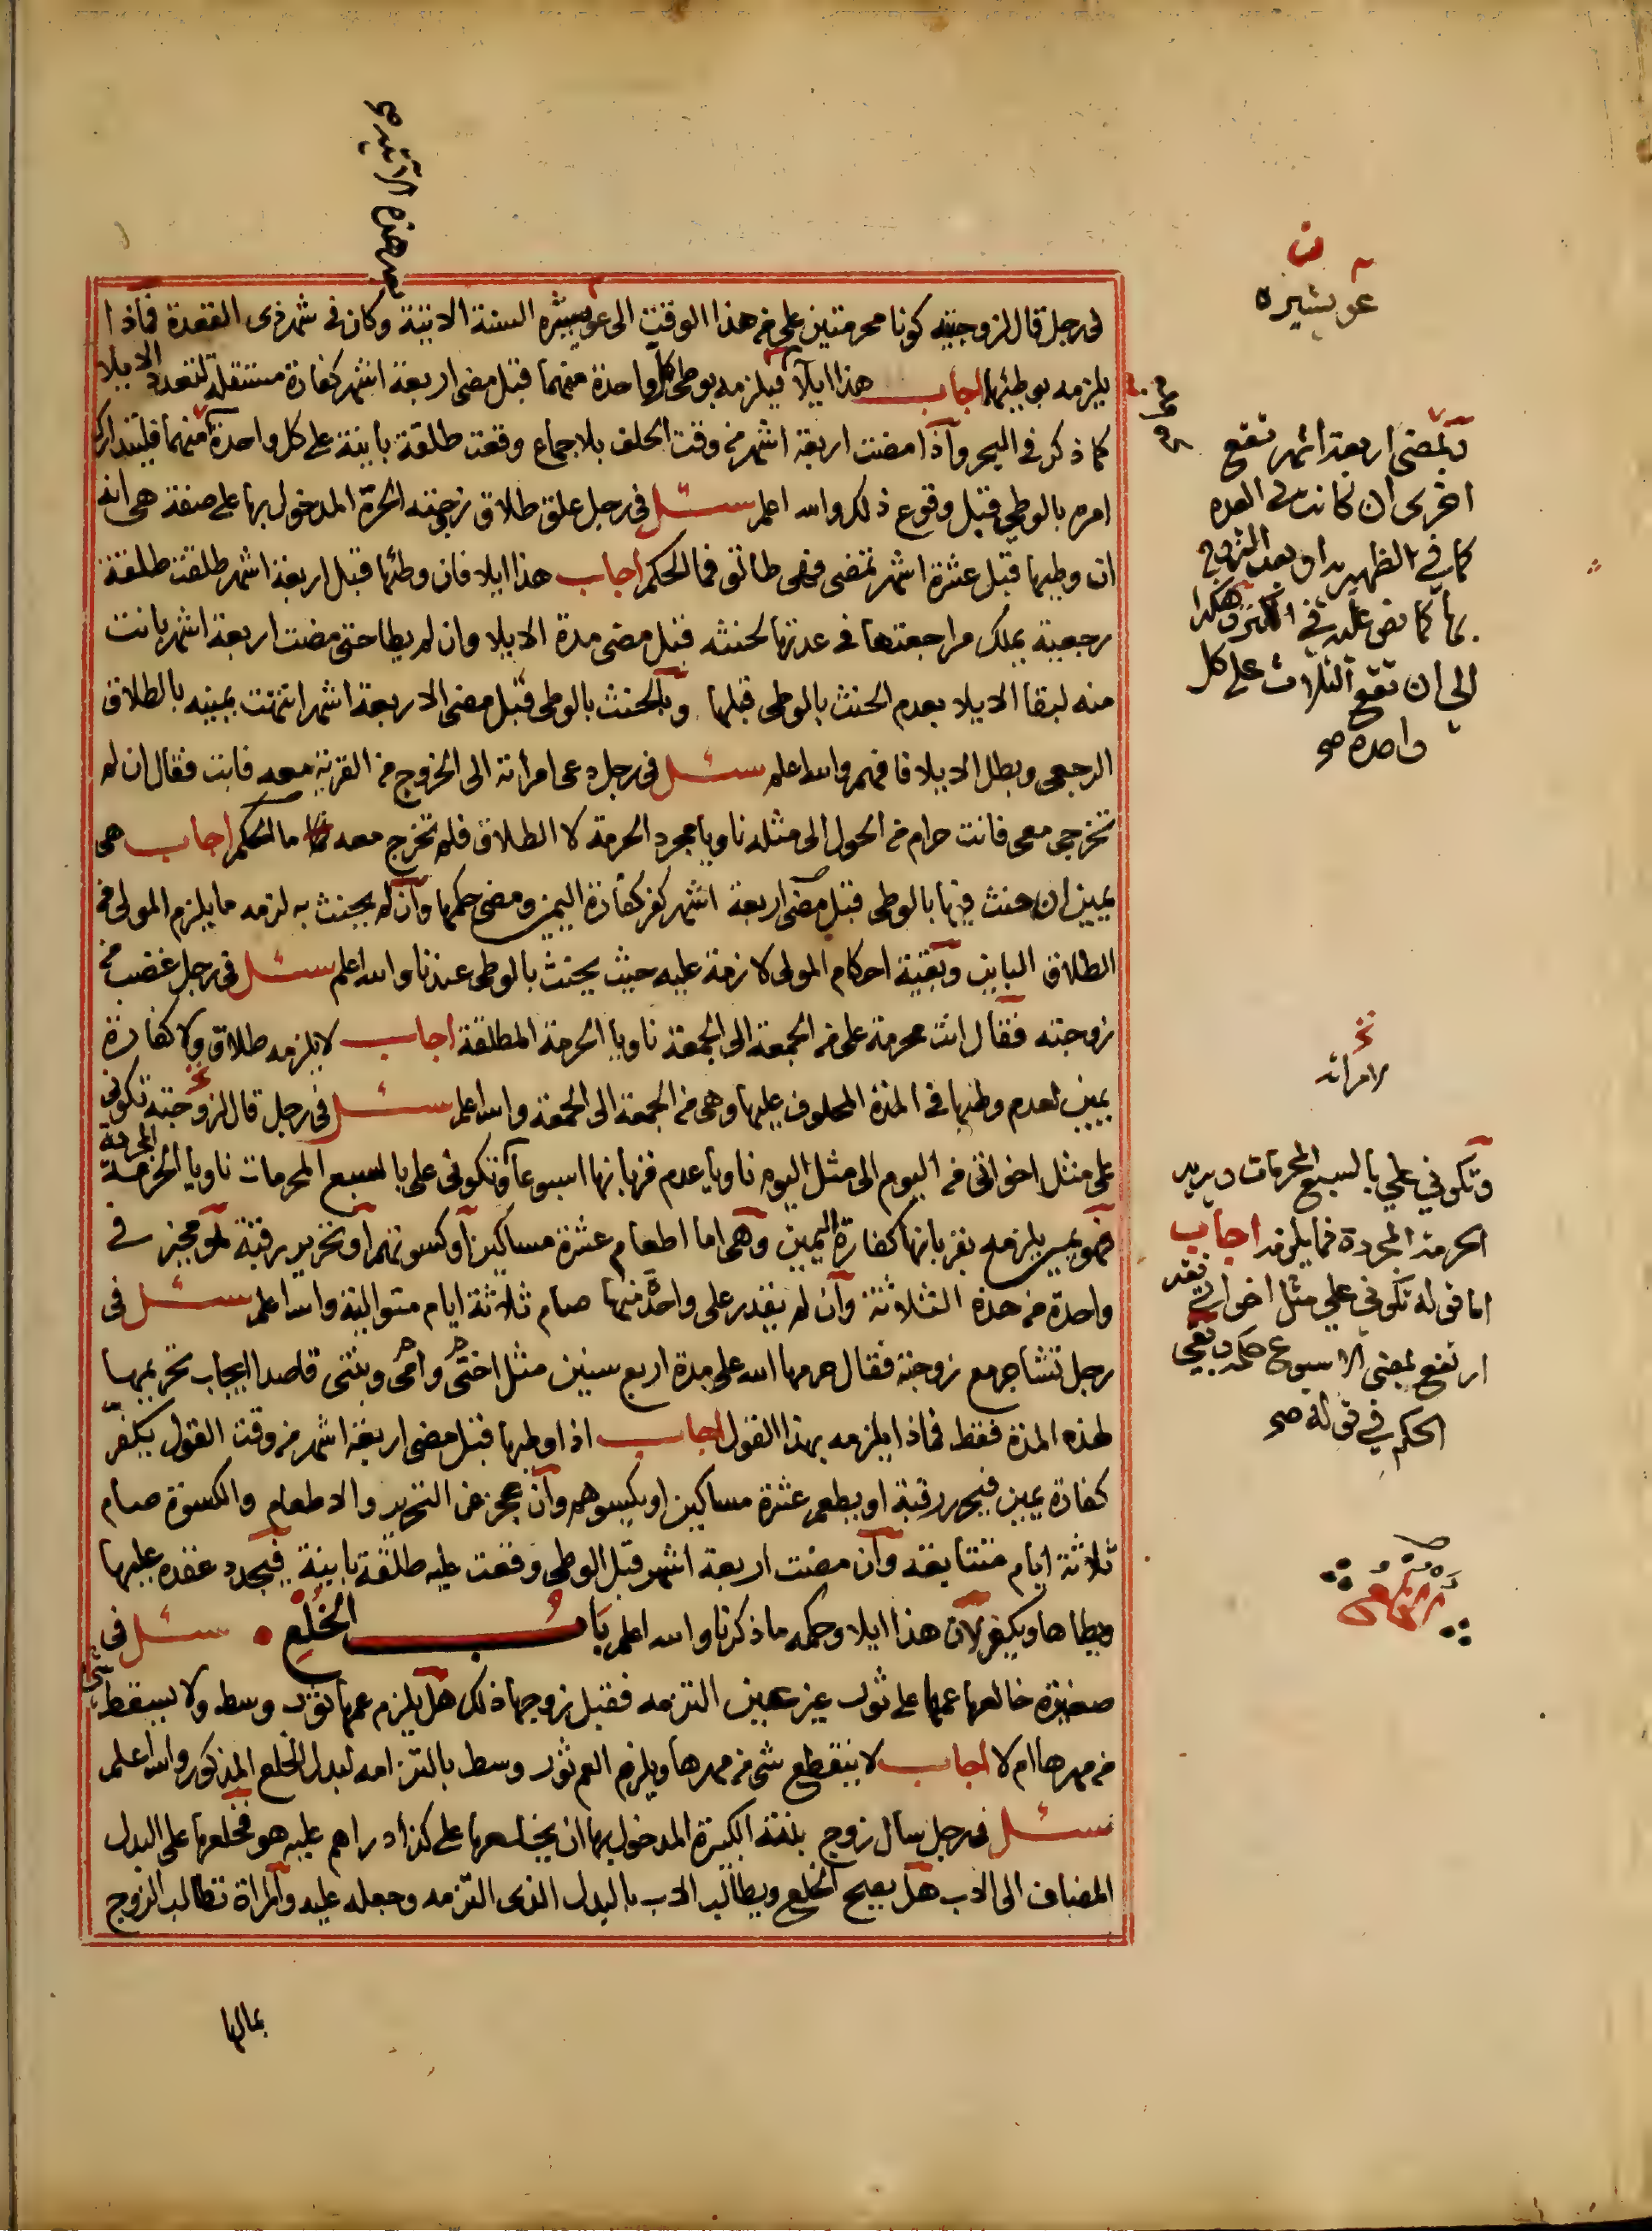 في رجل قال لزوجتيه كونا محرمتين علي من هذا الوقت الى عويشيره السنة الاتية وكان في شهر ذي القعدة فماذا
يلزمه بوطئهما اجاب هذا ايلا فيلزمه بوطي كل واحدة منهما قبل مضي اربعة اشهر كفارة مستقلة لتعدد الايلا
كما ذكر في البحر واذا مضت اربعة اشهر من وقت الحلف بلا جماع وقعت طلقة باينة على كل واحدة منهما فليتدارك
امره بالوطي قبل وقوع ذلك والله اعلم سئل في رجل علق طلاق زوجته الحرة المدخول بها على صفة هي انه
ان وطيها قبل عشرة اشهر تمضي فهي طالق فما الحكم اجاب هذا ايلا فان وطئها قبل اربعة اشهر طلقت طلقة
رجعية يملك مراجعتها في عدتها لحنثه قبل مضي مدة الايلا وان لم يطا حتى مضت اربعة اشهر بانت
منه لبقا الايلا بعدم الحنث بالوطي قبلها وبالحنث بالوطي قبل مضي الاربعة اشهر انتهت يمينه بالطلاق
الرجعي وبطل الايلا فافهم والله اعلم سئل في رجل دعى امراته الى الخروج من القرية معه فابت فقال ان لم
تخرجي معي فانت حرام من الحول الى مثله ناويا مجرد الحرمة لا الطلاق فلم تخرج معه ما الحكم اجاب هي
يمين ان حنث فيها بالوطي قبل مضي اربعة اشهر كفر كفارة اليمين ومضى حكمها وان لم يحنث به لزمه ما يلزم المولي من
الطلاق الباين وبقية احكام المولي لازمة عليه حيث يحنث بالوطي عندنا والله اعلم سئل في رجل غضب من
زوجته فقال انت محرمة علي من الجمعة الى الجمعة ناويا الحرمة المطلقة اجاب لا يلزمه طلاق ولا كفارة
يمين لعدم وطئها في المدة المحلوف عليها وهي من الجمعة الى الجمعة والله اعلم سئل في رجل قال لزوجته تكوني
علي مثل اخواتي من اليوم الى مثل اليوم ناويا عدم قربانها اسبوعا وتكوني علي بالسبع المحرمات ناويا الحرمة المجردة
فهو يمين يلزمه بقربانها كفارة اليمين وهي اما اطعام عشرة مساكين او كسوتهم او تحرير رقبة هو مخير في
واحدة من هذه الثلاثة وان لم يقدر على واحدة منها صام ثلاثة ايام متوالية والله اعلم سئل في
رجل تشاجر مع زوجته فقال حرمها الله علي مدة اربع سنين مثل اختي وامي وبنتي قاصدا ايجاب تحريمها
لهذه المدة فقط فماذا يلزمه بهذا القول اجاب اذا وطيها قبل مضي اربعة اشهر من وقت القول يكفر
كفارة يمين فيحرر رقبة او يطعم عشرة مساكين او يكسوهم وان عجز عن التحرير والاطعام والكسوة صام
ثلاثة ايام متتابعة وان مضت اربعة اشهر قبل الوطي وقعت عليه طلقة باينة فيجدد عقده عليها
ويطاها ويكفر لان هذا ايلا وحكمه ما ذكرنا والله اعلم باب الخلع سئل في
صغيرة خالعها عمها على ثوب غير معين التزمه فقبل زوجها ذلك هل يلزم عمها ثوب وسط ولا يسقط شي
من مهرها ام لا اجاب لا ينقطع شي من مهرها ويلزم العم ثوب وسط بالتزامه لبدل الخلع المذكور والله اعلم
سئل في رجل سال زوج بنته الكبيرة المدخول بها ان يخالعها على كذا دراهم عليه هو فخلعها على البدل
المضاف الى الاب هل يصح الخلع ويطالب الاب بالبدل الذي التزمه وجعله عليه والمراة تطالب الزوج
بمالها
عويشيره
وبمضي اربعة اشهر تقع
اخرى ان كانت في العده
كما في الظهيرية او بعد التزوج
بها كما نص عليه في الكنز وهكذا
الى ان تقع الثلاث على كل
واحدة صح
لامراته
وتكوني علي بالسبع المحرمات ويريد
الحرمة المجردة فما يلزمه اجاب
اما قوله تكوني علي مثل اخواتي فقد
ارتفع بمضي الاسبوع حكمه وبقي
الحكم في قوله صح